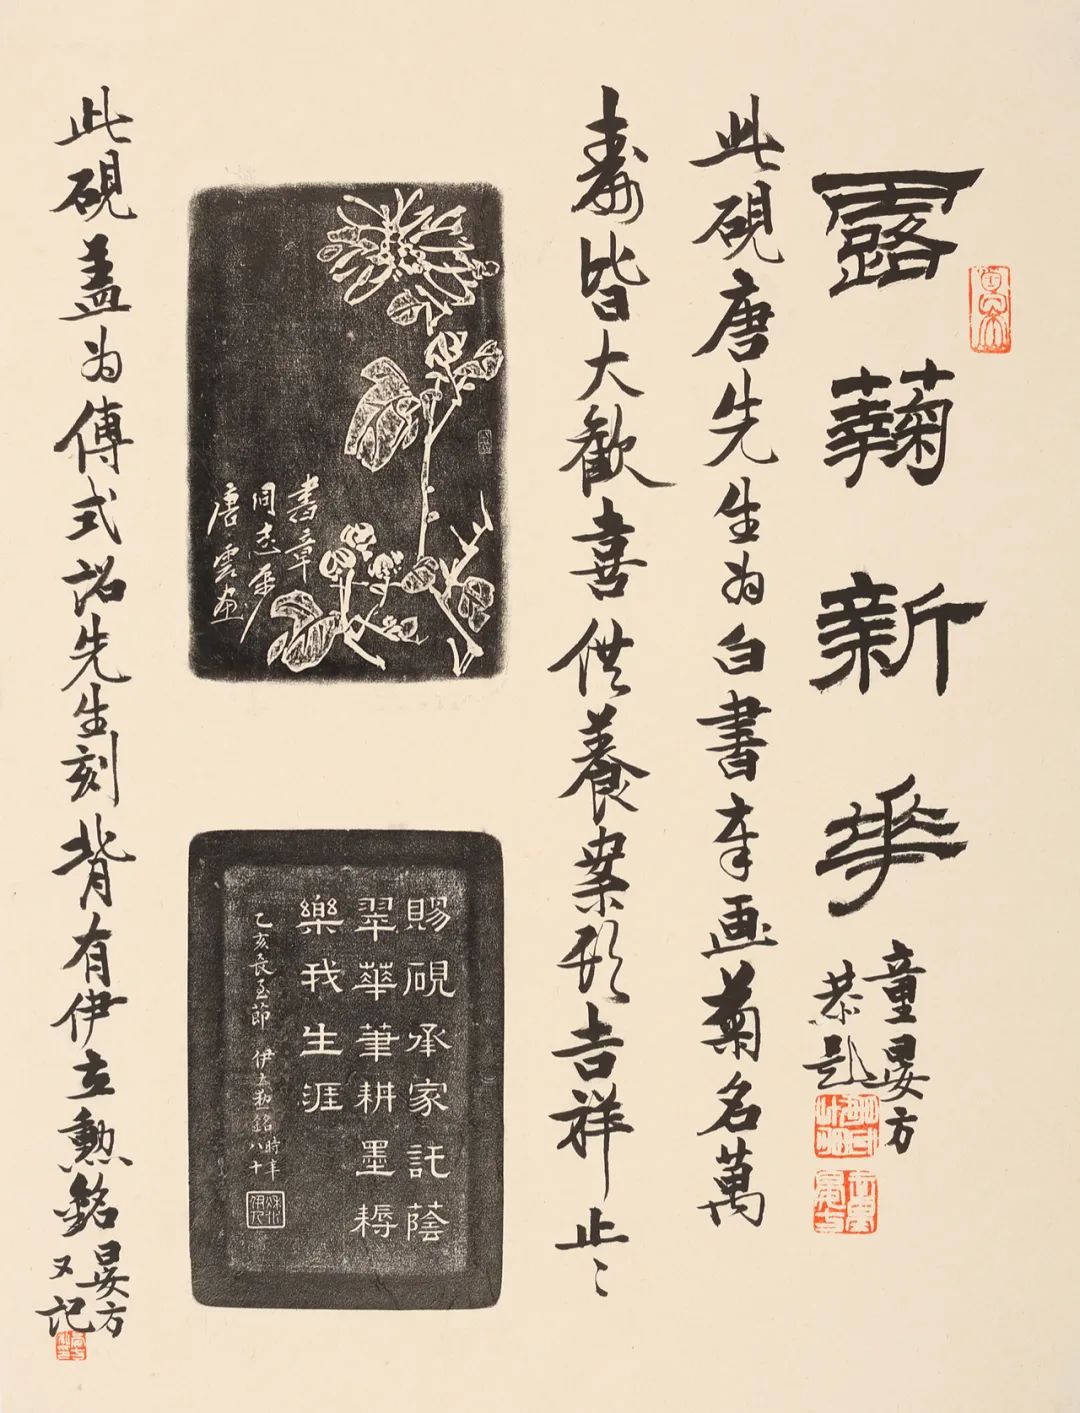 露鞠新華
童晏方
恭題
此硯唐先生为白書章画菊名萬
壽皆大歡喜供養案頭吉祥止止
書章
同志屬
唐雲画
賜硯承家託蔭
翠華筆耕墨耨
樂我生涯
乙亥長至節 伊立勳銘時年八十
此硯盖为傅式詔先生刻背有伊立勳銘
晏方
又記